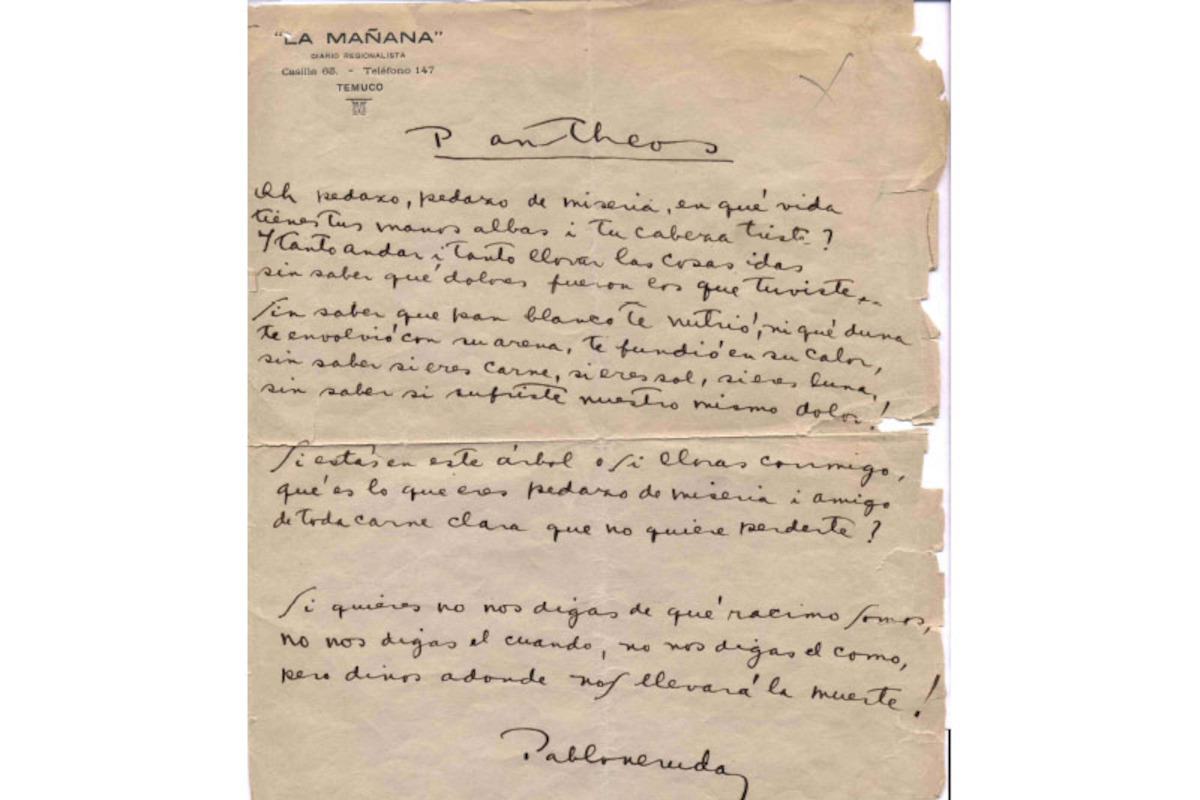 "LA MAÑANA"
DIARIO REGIONALISTA
Casilla 65. - Teléfono 147
TEMUCO
Pantheos
Oh pedazo, pedazo de miseria, en qué vida
tienes tus manos albas i tu cabeza triste?
Y tanto andar i tanto llorar las cosas idas
sin saber qué dolores fueron los que tuviste...
Sin saber que pan blanco te nutrió, ni qué duna
te envolvió con su arena, te fundió en su calor,
sin saber si eres carne, si eres sol, si eres luna,
sin saber si sufriste nuestro mismo dolor!
Si estás en este árbol o si lloras conmigo,
qué es lo que eres pedazo de miseria i amigo
de toda carne clara que no quiere perderte?
Si quieres no nos digas de qué racimo somos,
no nos digas el cuando, no nos digas el como,
pero dinos adonde nos llevará la muerte!
Pablo neruda